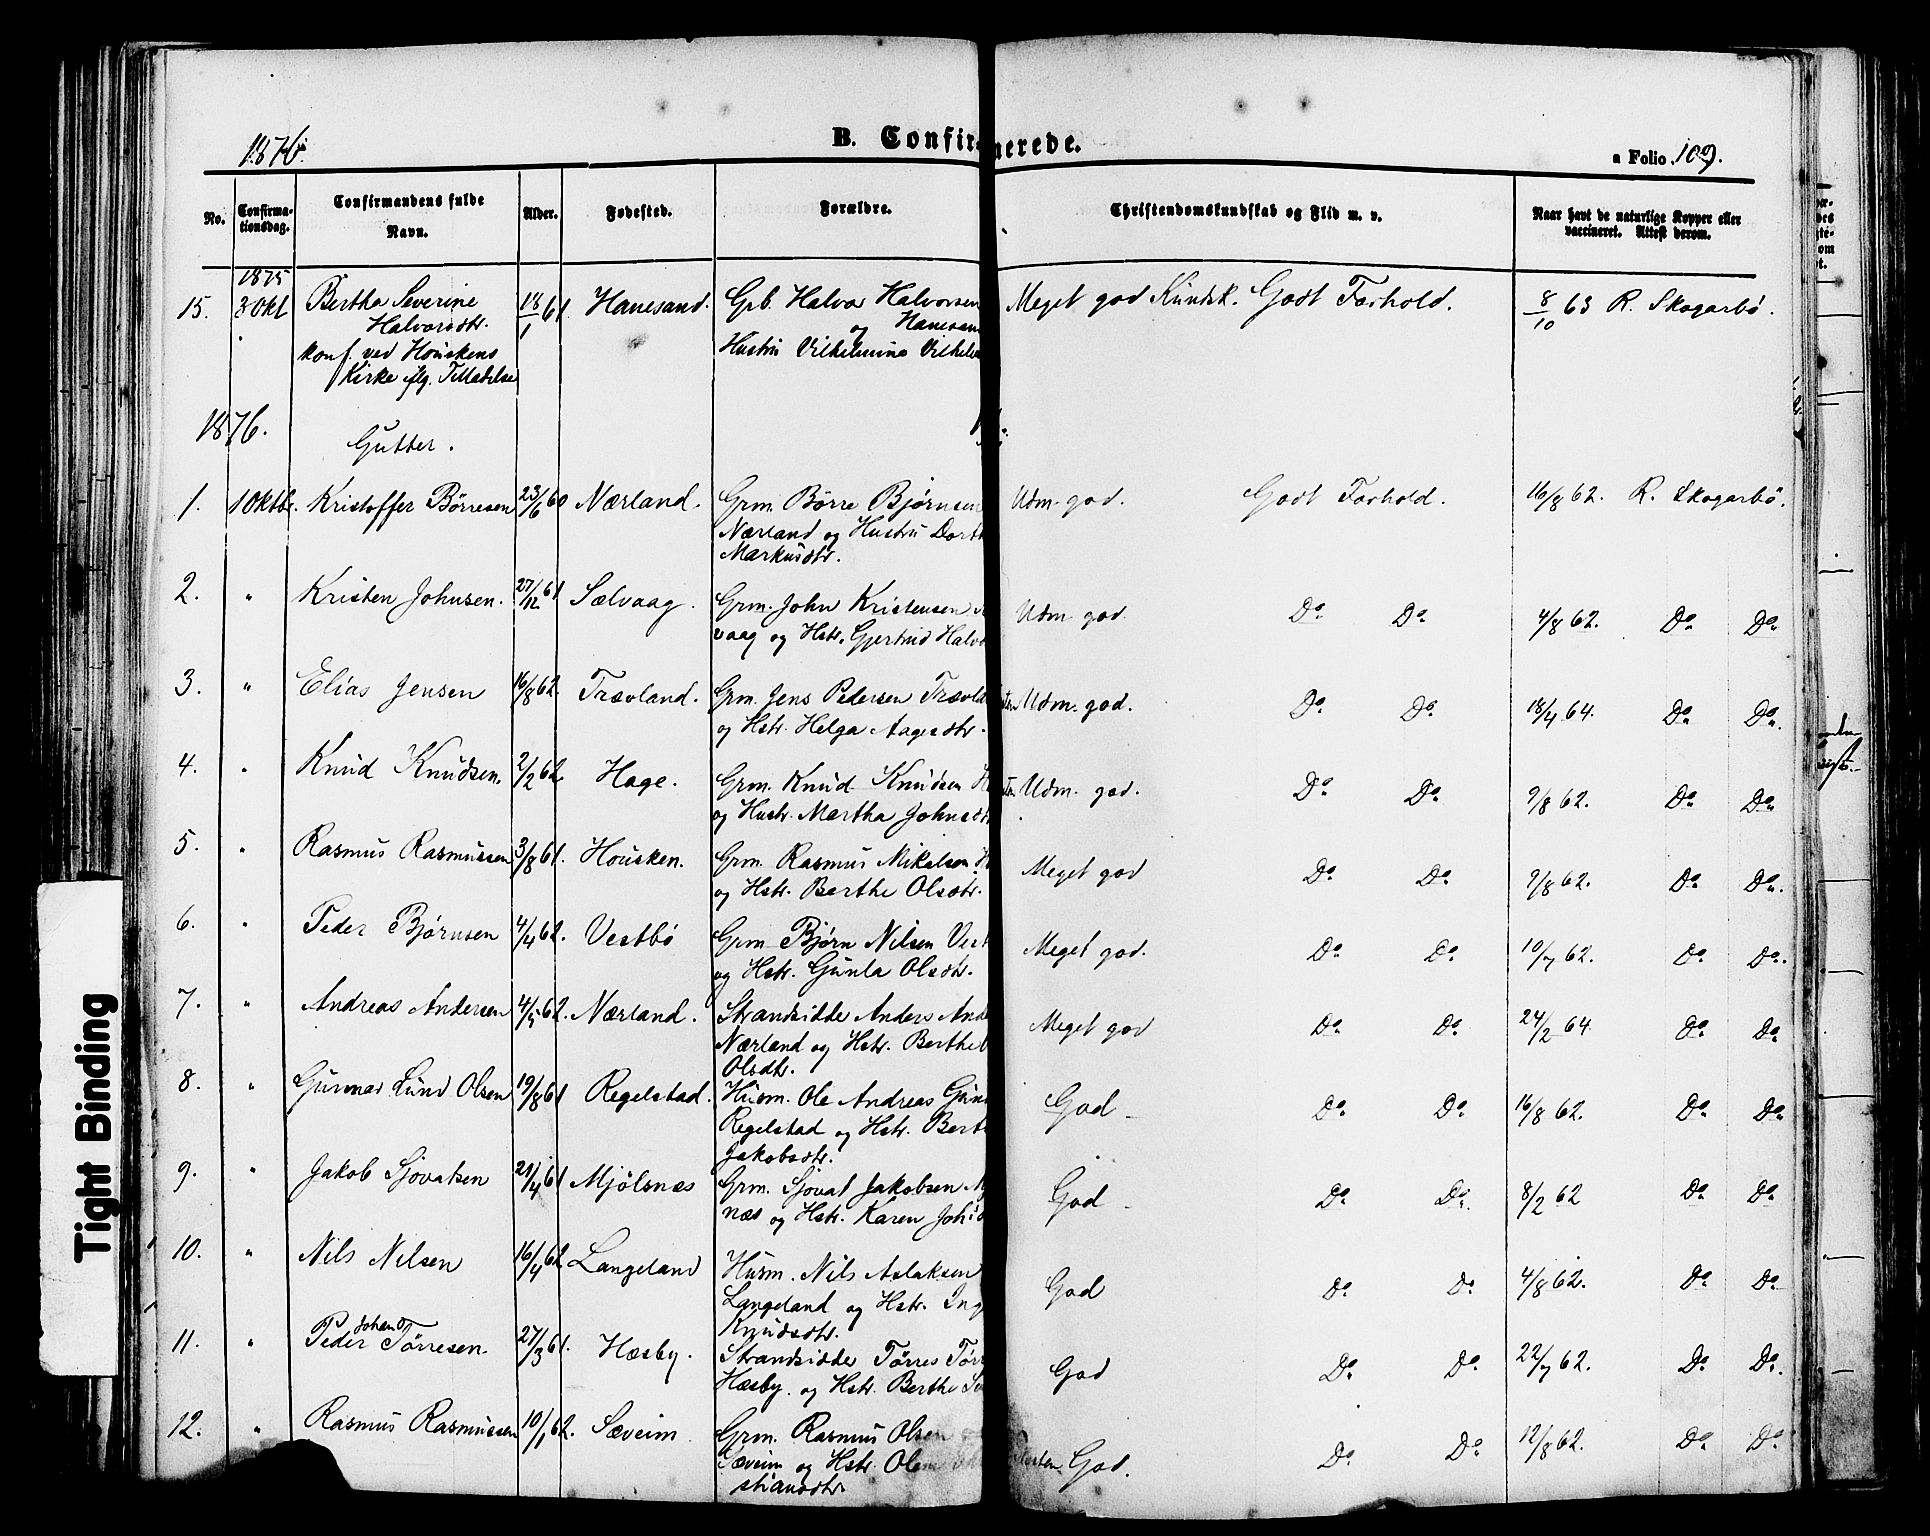 1876.
B. Confirmerede.
a Folio 109.
No. Confirma-tionsdag. Confirmandens fulde Navn. Alder. Fødested. Forældre. Christendomskundskab og Flid m. v. Naar havt de naturlige Kopper eller vaccineret. Attest derom.
1875
15. 3 Okt Bertha Severine 18/1 61. Hanesand. Grb. Halvor Halvorsen Meget god Kundsk. Godt Forhold. 8/10 63 R. Skogarbø.
Halvorsdtr. og Hanesan
konf. ved Houskens Hustru Vilhelmine Vilhelm
Kirke iflg. Tilladelse
1876.
Gutter.
1. 1 Oktbr. Kristoffer Børresen 23/6 60 Nærland. Grm. Børre Bjørnsen Udm. god. Godt Forhold. 16/8 62. R. Skogarbø.
Nærland og Hustru Dort
Markusdtr.
2. " Kristen Johnsen. 27/12 61 Sælvaag. Grm. John Kristensen Udm god. Do. Do. 4/8 62. Do. Do.
vaag og Hstr. Gjertrud Halv
3. " Elias Jensen 16/8 62. Trævland. Grm. Jens Pedersen Trævla Udm. god. Do. Do. 18/4 64. Do. Do.
og Hstr. Helga Aagesdtr.
4. " Knud Knudsen. 2/2 62. Hage. Grm. Knud Knudsen H Udm. god. Do. Do. 9/8 62. Do. Do.
og Hustr. Martha Johnsdt
5. " Rasmus Rasmussen 3/8 61. Housken. Grm. Rasmus Mikalsen H Meget god Do. Do. 9/8 62. Do. Do.
og Hstr. Berthe Olsdtr.
6. " Peder Bjørnsen 4/4 62. Vestbø Grm. Bjørn Nilsen Vest Meget god. Do. Do. 10/7 62. Do. Do.
og Hstr. Gunla Olsdtr.
7. " Andreas Andersen 4/5 62. Nærland. Strandsidde Anders And Meget god Do. Do. 24/2 64 Do. Do.
Nærland og Hstr. Berthe
Olsdtr.
8. " Gunnar Lund Olsen 19/8 61 Regelstad. Husm. Ole Andreas Gun God Do. Do. 16/8 62. Do. Do.
Regelstad og Hstr. Bert
Jakobsdtr.
9. " Jakob Sjovatsen 21/4 61 Mjølsnæs Grm. Sjovat Jakobsen God Do. Do. 8/2 62 Do. Do.
næs og Hstr. Karen Joh
10. " Nils Nilsen 16/4 62 Langeland Husm. Nils Aslaksen God Do. Do. 4/8 62. Do. Do.
Langeland og Hstr. Ing
Knudsdtr.
11. " Peder Johan Tørresen. 27/3 61. Hæsby. Strandsidde Tørres Tør God Do. Do. 22/7 62. Do. Do.
Hæsby. og Hstr. Berthe
12. " Rasmus Rasmussen 10/1 62. Sæveim Grm. Rasmus Olsen God. Do. Do. 12/8 62. Do. Do.
Sæveim og Hstr.
stiansdtr.
Tight Binding